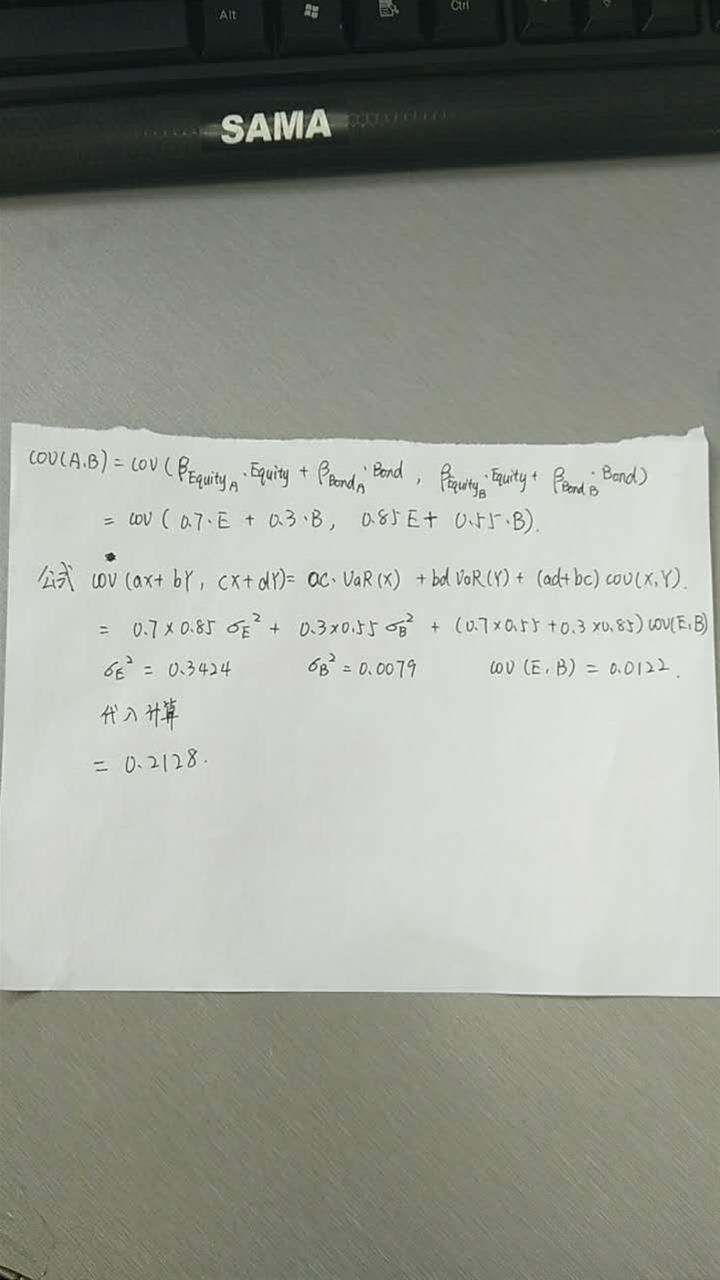 Alt Ctrl
SAMA
COV(A.B) = COV (β_Equity_A · Equity + β_Bond_A · Bond , β_Equity_B · Equity + β_Bond_B · Bond)
= COV ( 0.7·E + 0.3·B, 0.85E + 0.55·B).
公式 COV (ax + bY, cx + dY) = ac·VaR(x) + bd VaR(Y) + (ad+bc) cov(x,Y).
= 0.7 × 0.85 σE² + 0.3×0.55 σB² + (0.7×0.55 + 0.3×0.85) COV(E,B)
σE² = 0.3424 σB² = 0.0079 COV (E, B) = 0.0122.
代入计算
= 0.2128.